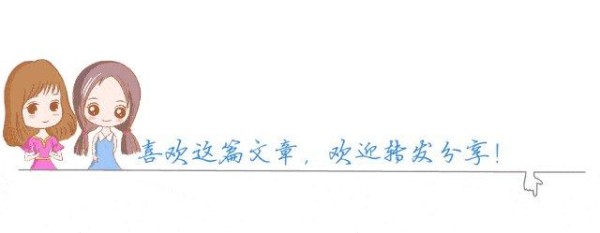 喜欢这篇文章，欢迎转发分享！